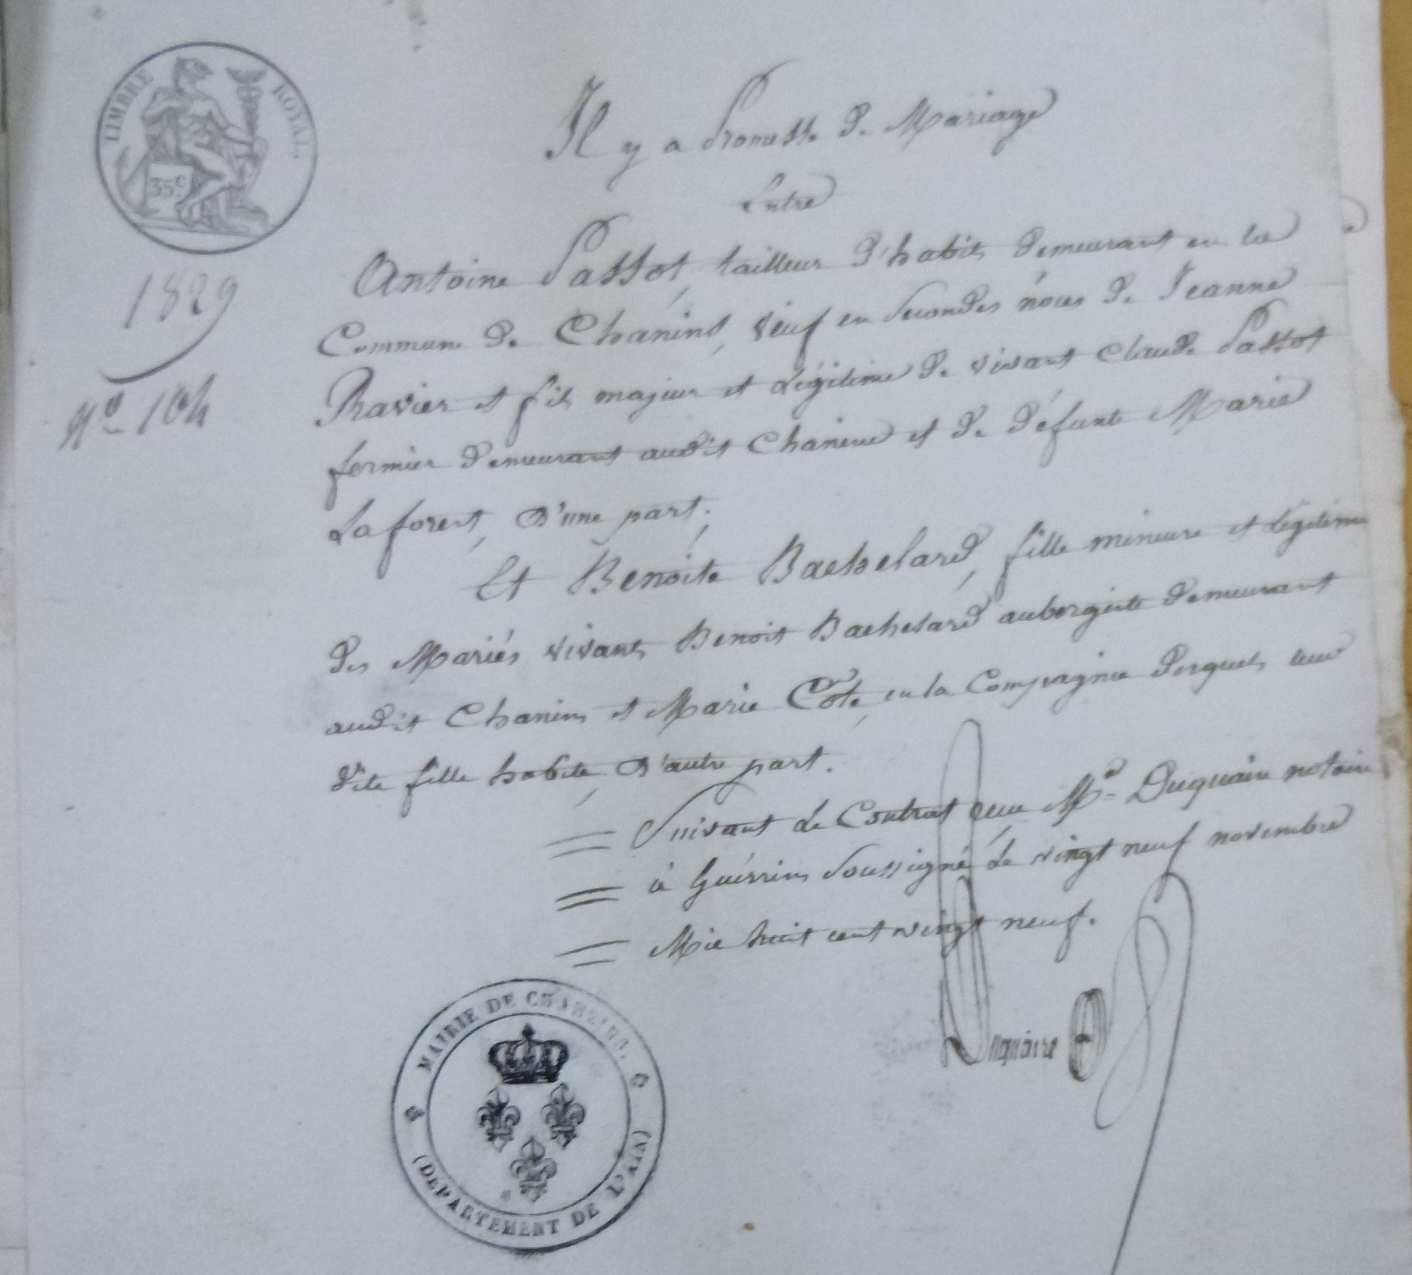 TIMBRE ROYAL.
35 c
1829
N.º 104
Il y a Promesse de Mariage
Entre
Antoine Passot, tailleur d'habits demeurant en la
Commune de Chaneins, veuf en secondes nôces de Jeanne
Ravier et fils majeur et Légitime de vivant Claude Passot
fermier demeurant audit Chaneins et de défunte Marie
Laforest, d'une part;
Et Benoite Bachelard, fille mineure et Légitime
des Mariés vivants Benoit Bachelard aubergiste demeurant
audit Chaneins et Marie Côte, en la Compagnie desquels
dite fille habite, d'autre part.
Suivant le Contrat reçu Me Duquaire notaire
à Guérrins soussigné le vingt neuf novembre
Mil huit cent vingt neuf.
Duquaire
MAIRIE DE CHANEINS.
(DEPARTEMENT DE L'AIN)